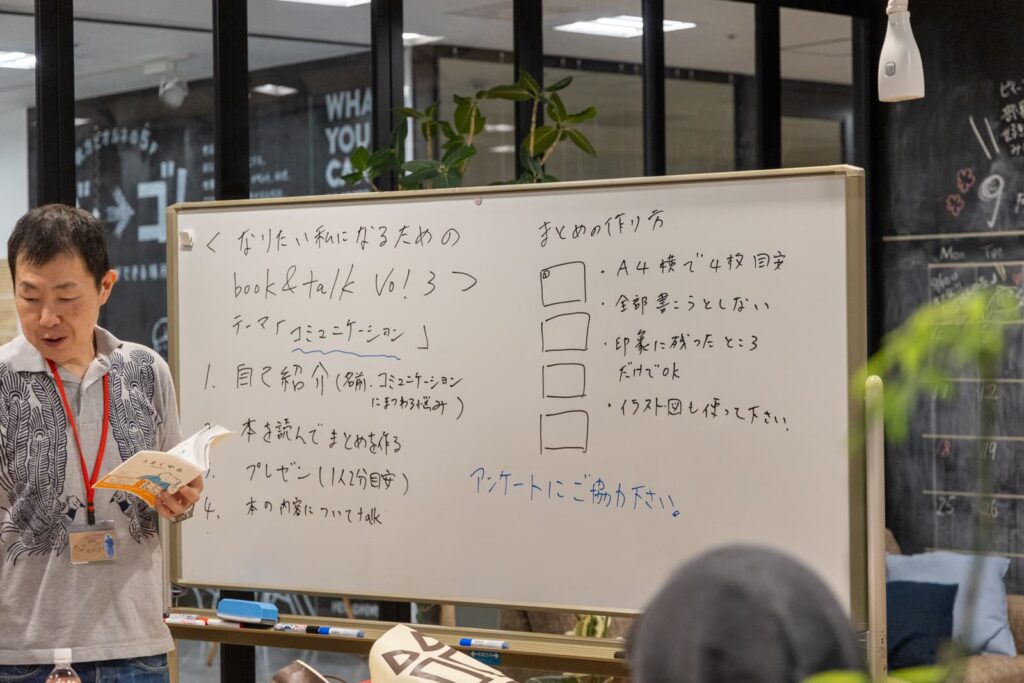 < なりたい私になるための
book&talk Vol 3 >
テーマ「コミュニケーション」
1. 自己紹介(名前.コミュニケーション
にまつわる悩み)
2. 本を読んでまとめを作る
3. プレゼン(1人2分目安)
4. 本の内容についてtalk
まとめの作り方
・A4横で4枚目安
・全部書こうとしない
・印象に残ったところ
だけでOK
・イラスト図も使って下さい.
アンケートにご協力下さい。
WHA
YOU
CAN
9月
Mon Tue
12
19
25 26